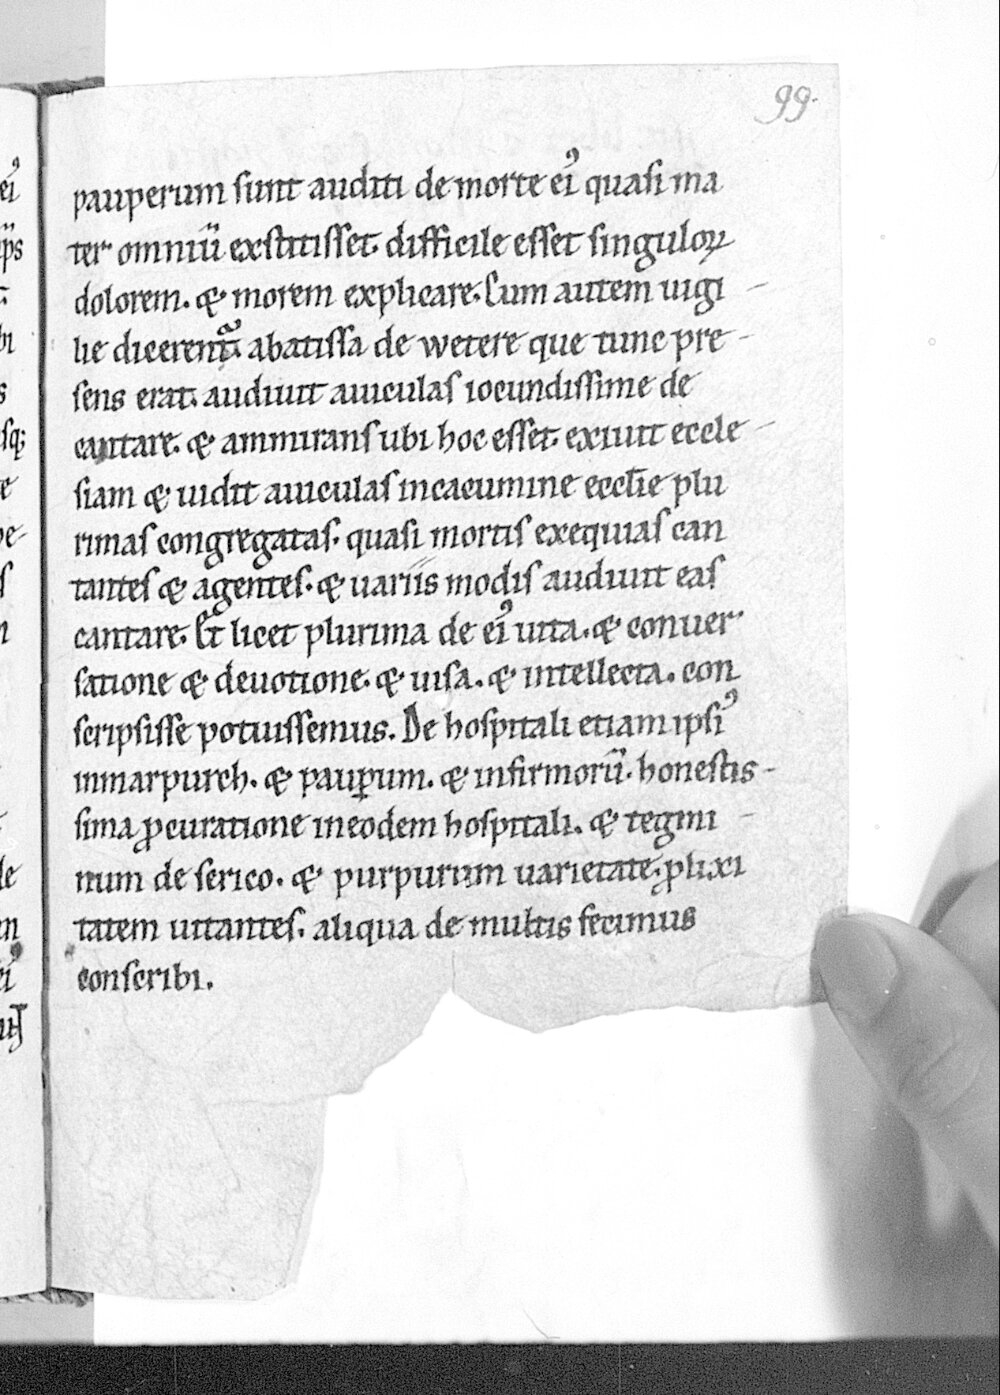 99.
pauperum sunt auditi de morte eiꝰ quasi ma
ter omniū exstitisset. difficile esset singuloꝝ
dolorem. & morem explicare. Cum autem uigi-
lie dicerent᷑. abatissa de wetere que tunc pre-
sens erat. audiuit auiculas iocundissime de
cantare. & ammirans ubi hoc esset. exiuit eccle-
siam & uidit auiculas in cacumine ecclīe plu
rimas congregatas. quasi mortis exequias can
tantes & agentes. & uariis modis audiuit eas
cantare. Et licet plurima de eiꝰ uita. & conuer
satione & deuotione. & uisa. & intellecta. con
scripsisse potuissemus. De hospitali etiam ipsiꝰ
inmarpurch. & pauꝑum. & infirmorū. honestis-
sima ꝓcuratione in eodem hospitali. & tegmi-
num de serico. & purpurum uarietate. ꝓlixi
tatem uitantes. aliqua de multis fecimus
conscribi.